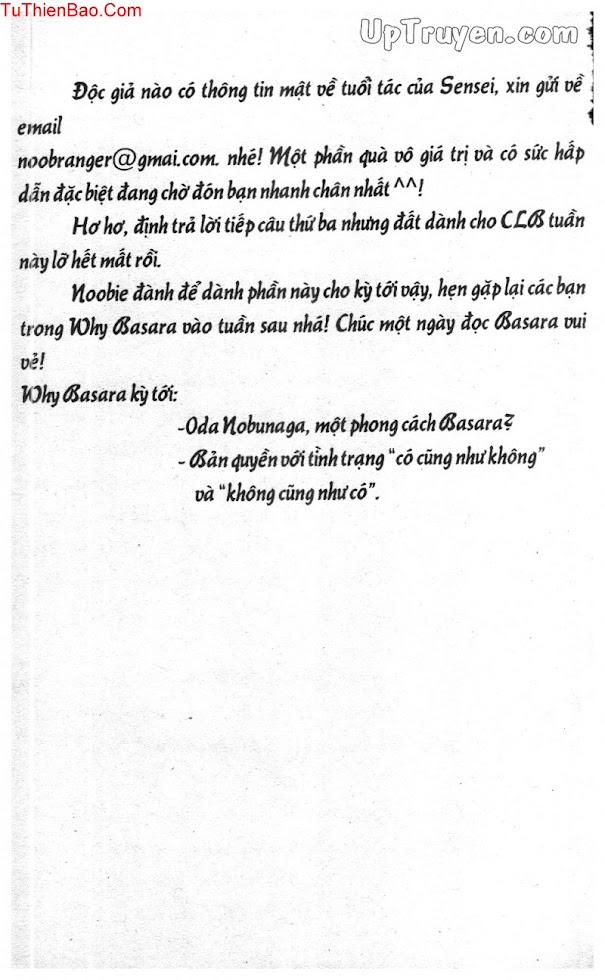 TuThienBao.Com
UpTruyen.com
Độc giả nào có thông tin mật về tuổi tác của Sensei, xin gửi về
email
noobranger@gmai.com. nhé! Một phần quà vô giá trị và có sức hấp
dẫn đặc biệt đang chờ đón bạn nhanh chân nhất ^^!
Hơ hơ, định trả lời tiếp câu thứ ba nhưng đất dành cho CLB tuần
này lỡ hết mất rồi.
Noobie đành để dành phần này cho kỳ tới vậy, hẹn gặp lại các bạn
trong Why Basara vào tuần sau nhá! Chúc một ngày đọc Basara vui
vẻ!
Why Basara kỳ tới:
-Oda Nobunaga, một phong cách Basara?
- Bản quyền với tình trạng “có cũng như không”
và “không cũng như có”.